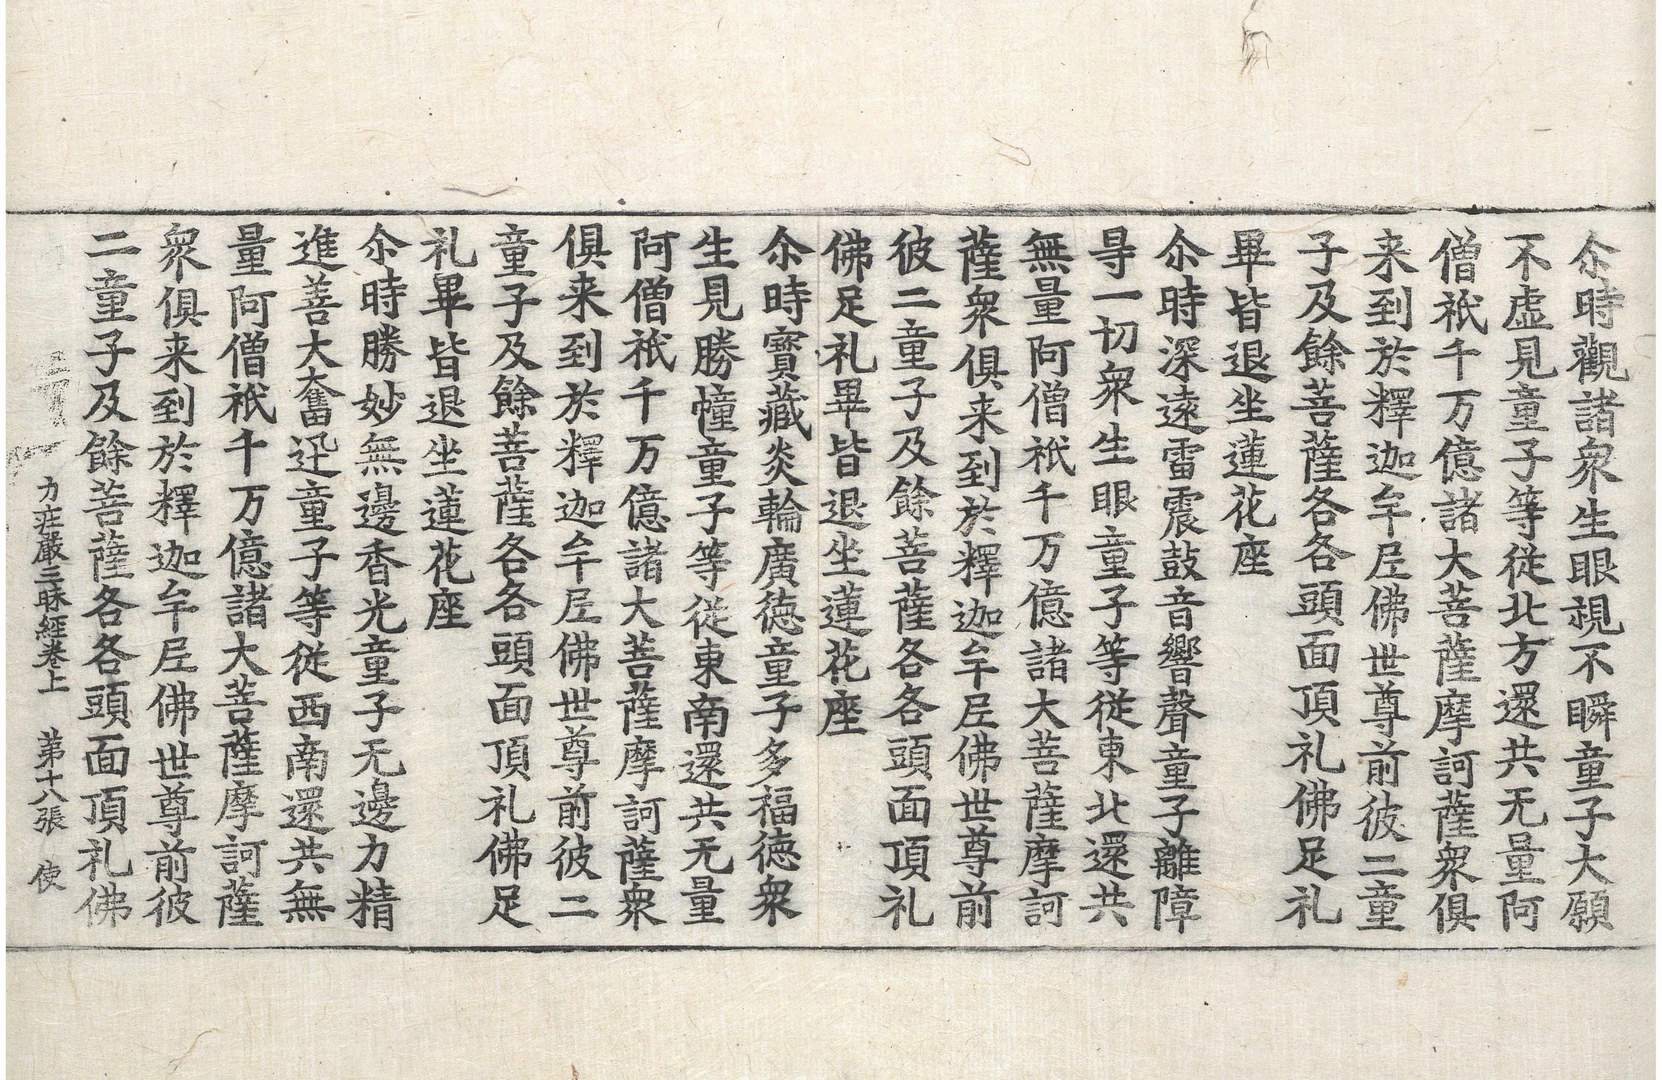 尒時觀諸衆生眼視不瞬童子大願
不虛見童子等従北方還共无量阿
僧祇千万億諸大菩薩摩訶薩衆俱
来到於釋迦牟𡰱佛世尊前彼二童
子及餘菩薩各各頭面頂礼佛足礼
畢皆退坐蓮花座
尒時深遠雷震鼓音響聲童子離障
㝵一切衆生眼童子等従東北還共
無量阿僧祇千万億諸大菩薩摩訶
薩衆俱来到於釋迦牟𡰱佛世尊前
彼二童子及餘菩薩各各頭面頂礼
佛足礼畢皆退坐蓮花座
尒時寶藏炎輪廣徳童子多福徳衆
生見勝幢童子等従東南還共无量
阿僧祇千万億諸大菩薩摩訶薩衆
俱来到於釋迦牟𡰱佛世尊前彼二
童子及餘菩薩各各頭面頂礼佛足
礼畢皆退坐蓮花座
尒時勝妙無邊香光童子无邊力精
進善大奮迅童子等従西南還共無
量阿僧祇千万億諸大菩薩摩訶薩
衆俱来到於釋迦牟𡰱佛世尊前彼
二童子及餘菩薩各各頭面頂礼佛
力莊嚴三昧經卷上 第十八張 使